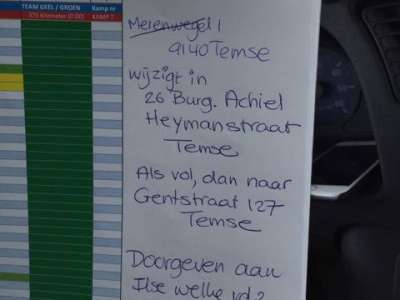 TEAM GEEL / GROEN
Kamp nr
Merenwegel 1
9140 Temse
wijzigt in
26 Burg. Achiel
Heymanstraat
Temse
Als vol, dan naar
Gentstraat 127
Temse
Doorgeven aan
Ilse welke vd 2